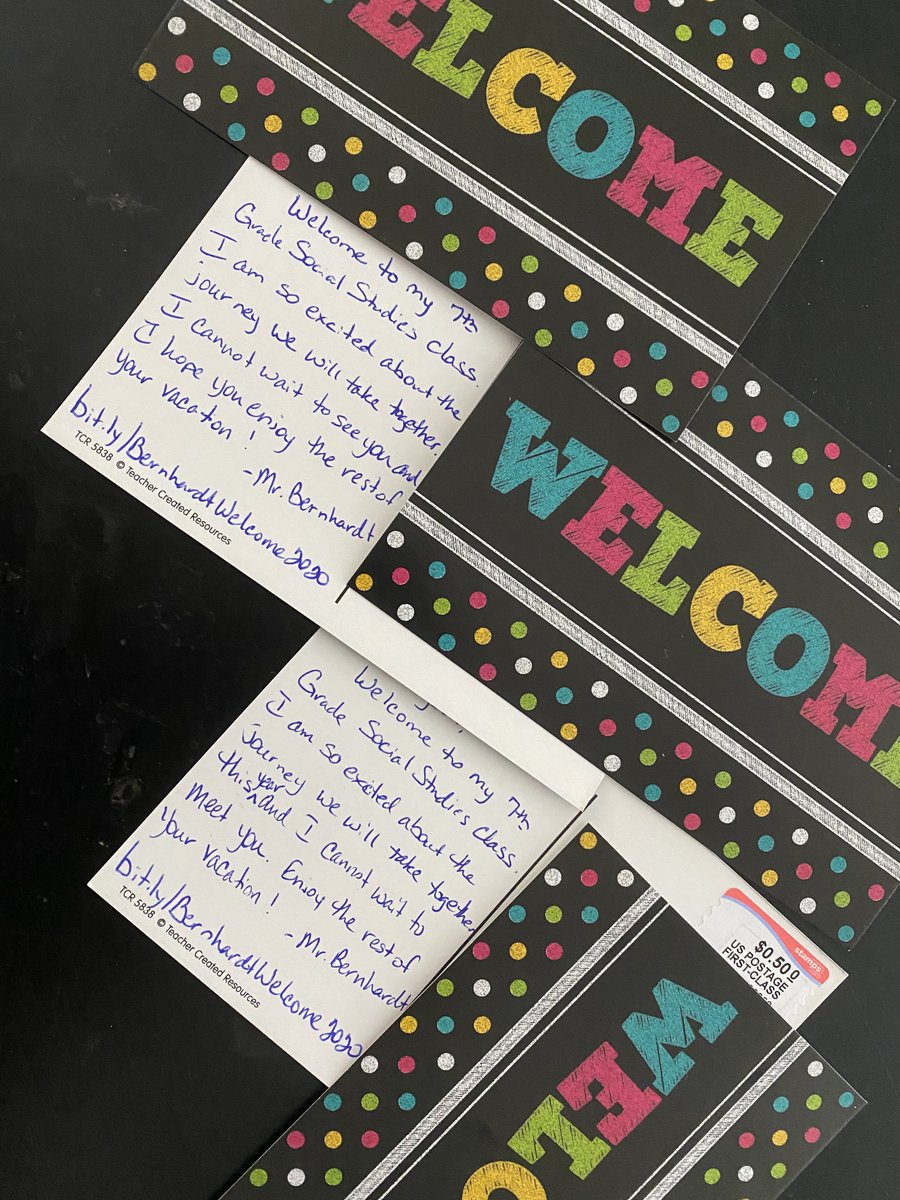 WELCOME
Welcome to my 7th
Grade Social Studies class.
I am so excited about the
journey we will take together.
I cannot wait to see you and
I hope you enjoy the rest of
your vacation!
- Mr. Bernhardt
bit.ly/BernhardtWelcome2020
TCR 5838 © Teacher Created Resources
WELCOME
Welcome to my 7th
Grade Social Studies class.
I am so excited about the
journey we will take together
this year and I cannot wait to
meet you. Enjoy the rest of
your vacation!
- Mr. Bernhardt
bit.ly/BernhardtWelcome2020
TCR 5838 © Teacher Created Resources
stamps.com
$0.500
US POSTAGE
FIRST-CLASS
WELC